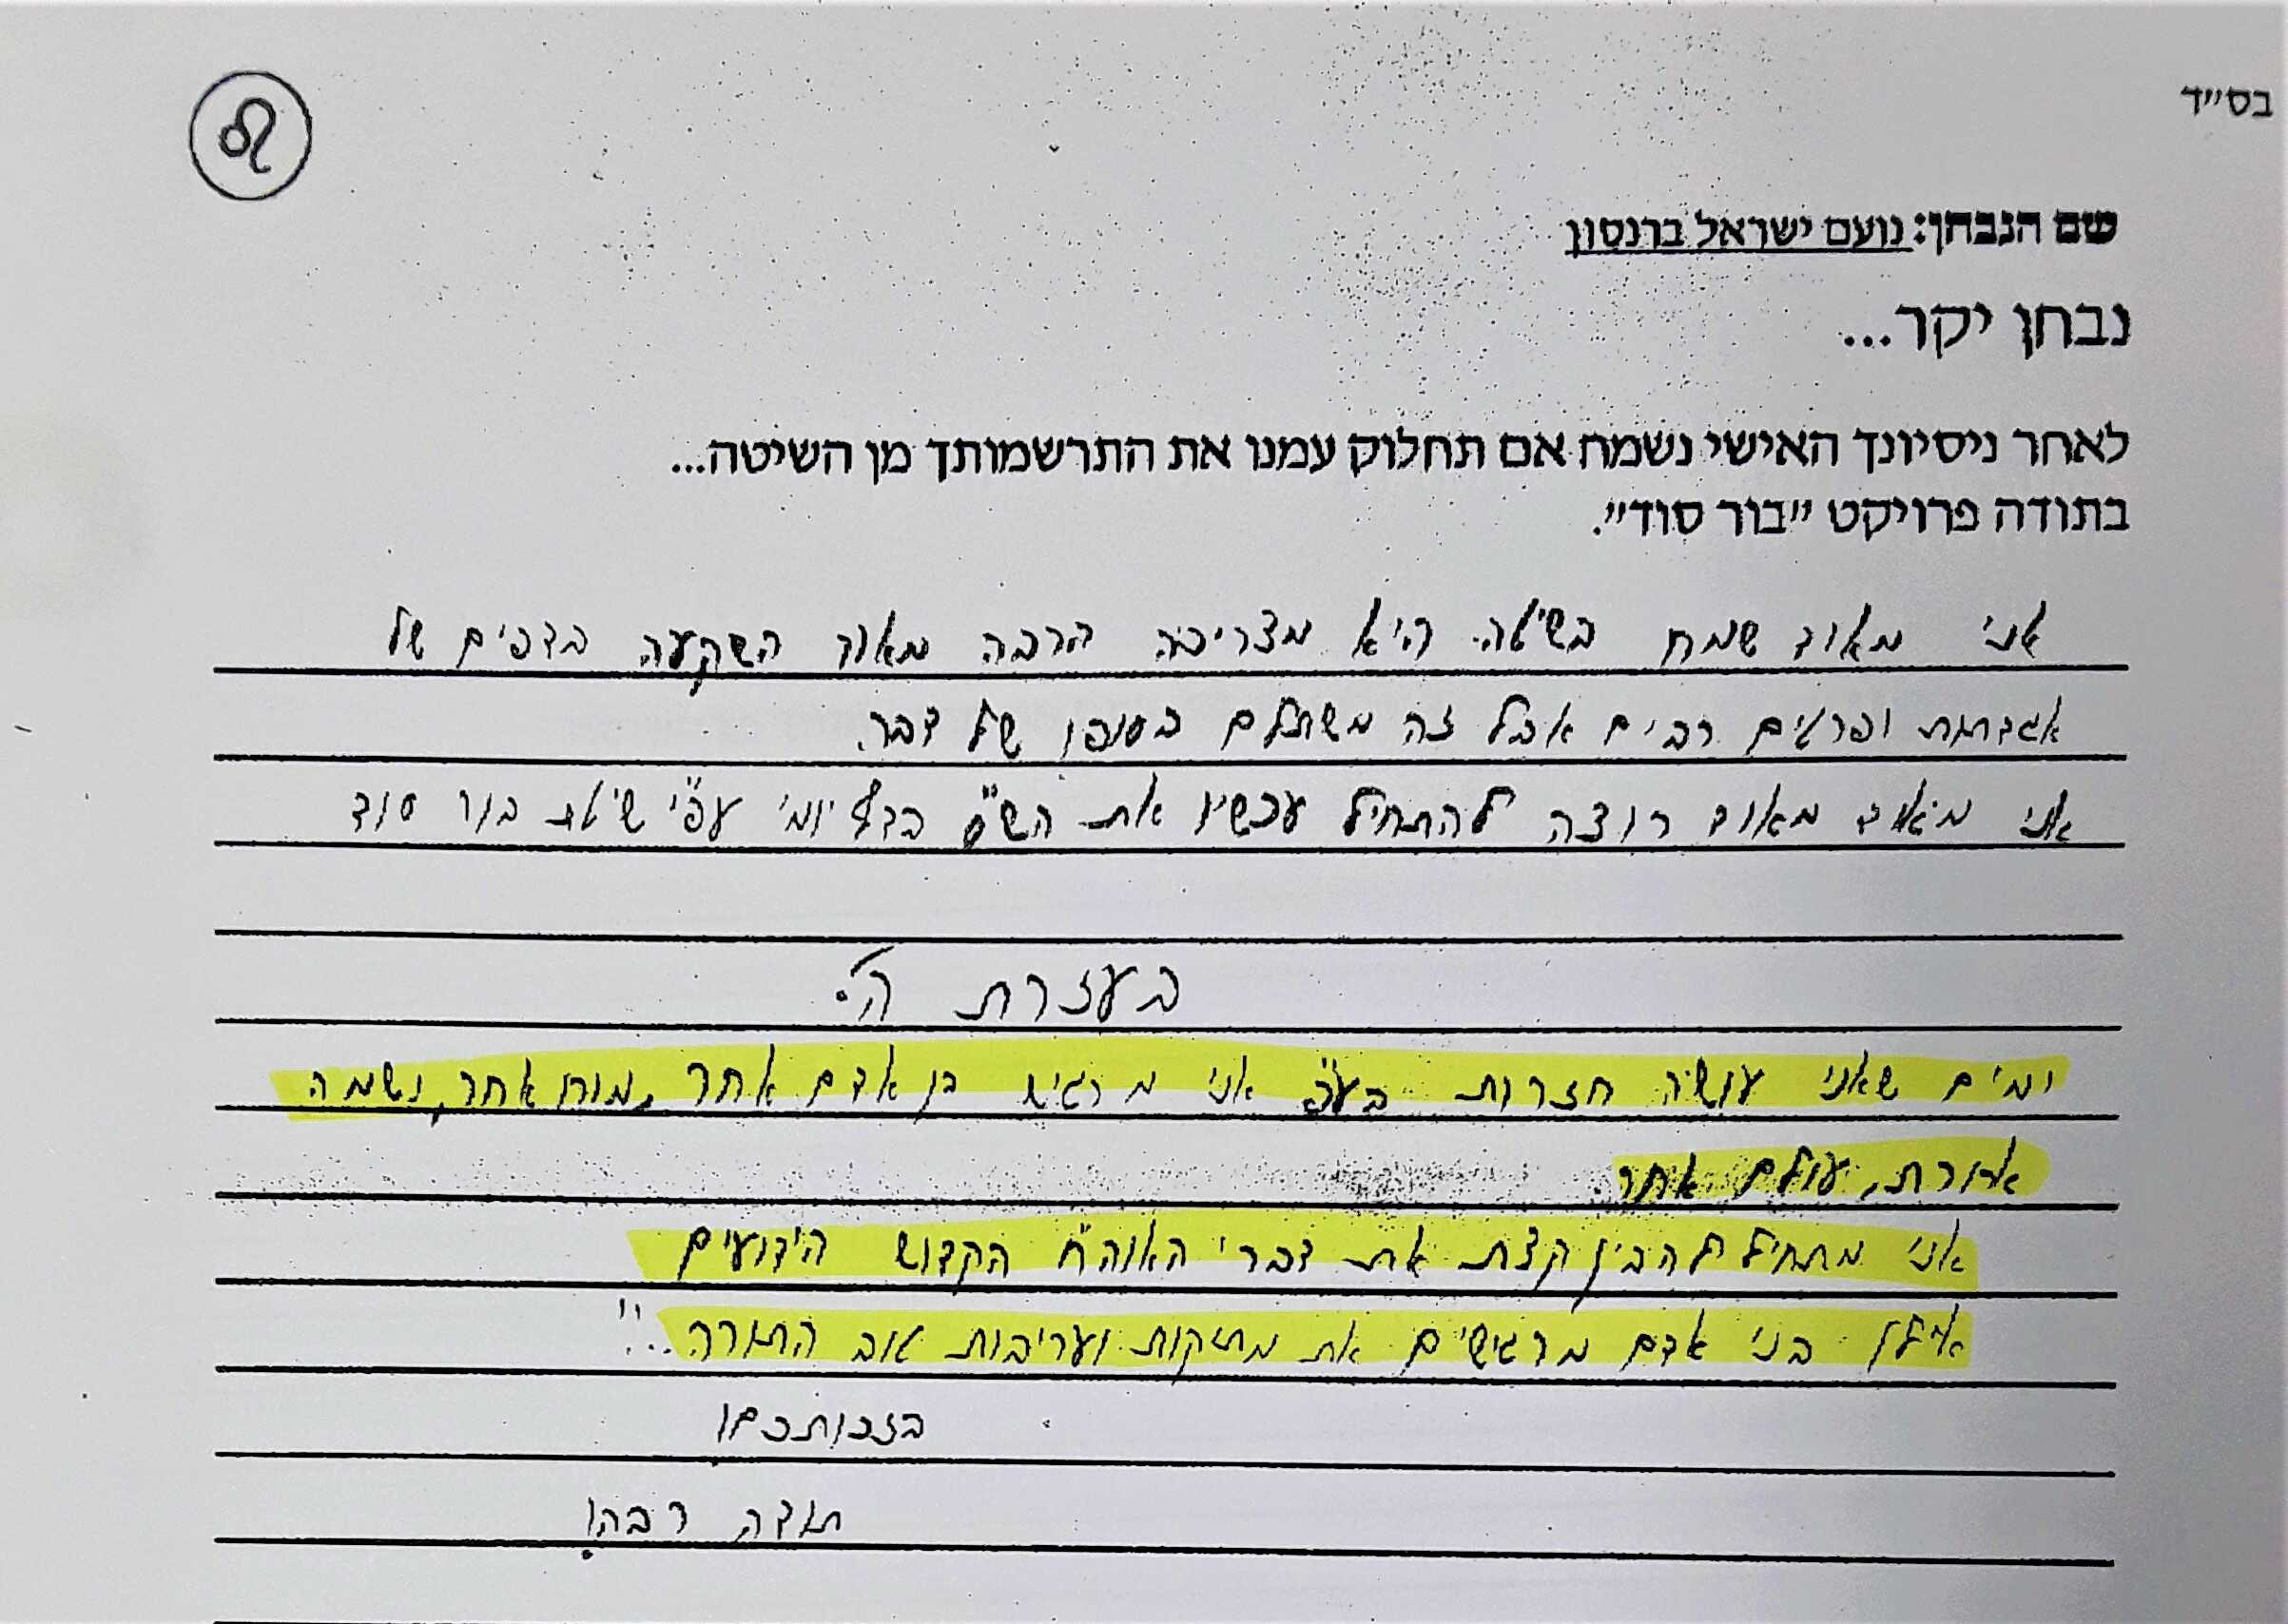 בס״ד
שם הנבחן: נועם ישראל ברנסון
נבחן יקר...
לאחר ניסיונך האישי נשמח אם תחלוק עמנו את התרשמותך מן השיטה...
בתודה פרויקט ״בור סוד״.
אני מאוד שמח בשיטה. היא מצריכה הרבה מאוד השקעה בדפים של
אגדתות ופרטים רבים אבל זה משתלם בסופו של דבר.
אני מאוד מאוד רוצה להתחיל עכשיו את הש״ס בדף יומי עפ״י שיטת בור סוד
בעזרת ה'.
ימים שאני עושה חזרות בע״פ אני מרגיש בן אדם אחר, מוח אחר, נשמה
אחרת, עולם אחר.
אני מתחיל להבין קצת את דברי האוה״ח הקדוש הידועים
אילו בני אדם מרגישים את מתקות ועריבות טוב התורה..."
בזכותכם!
תודה רבה!